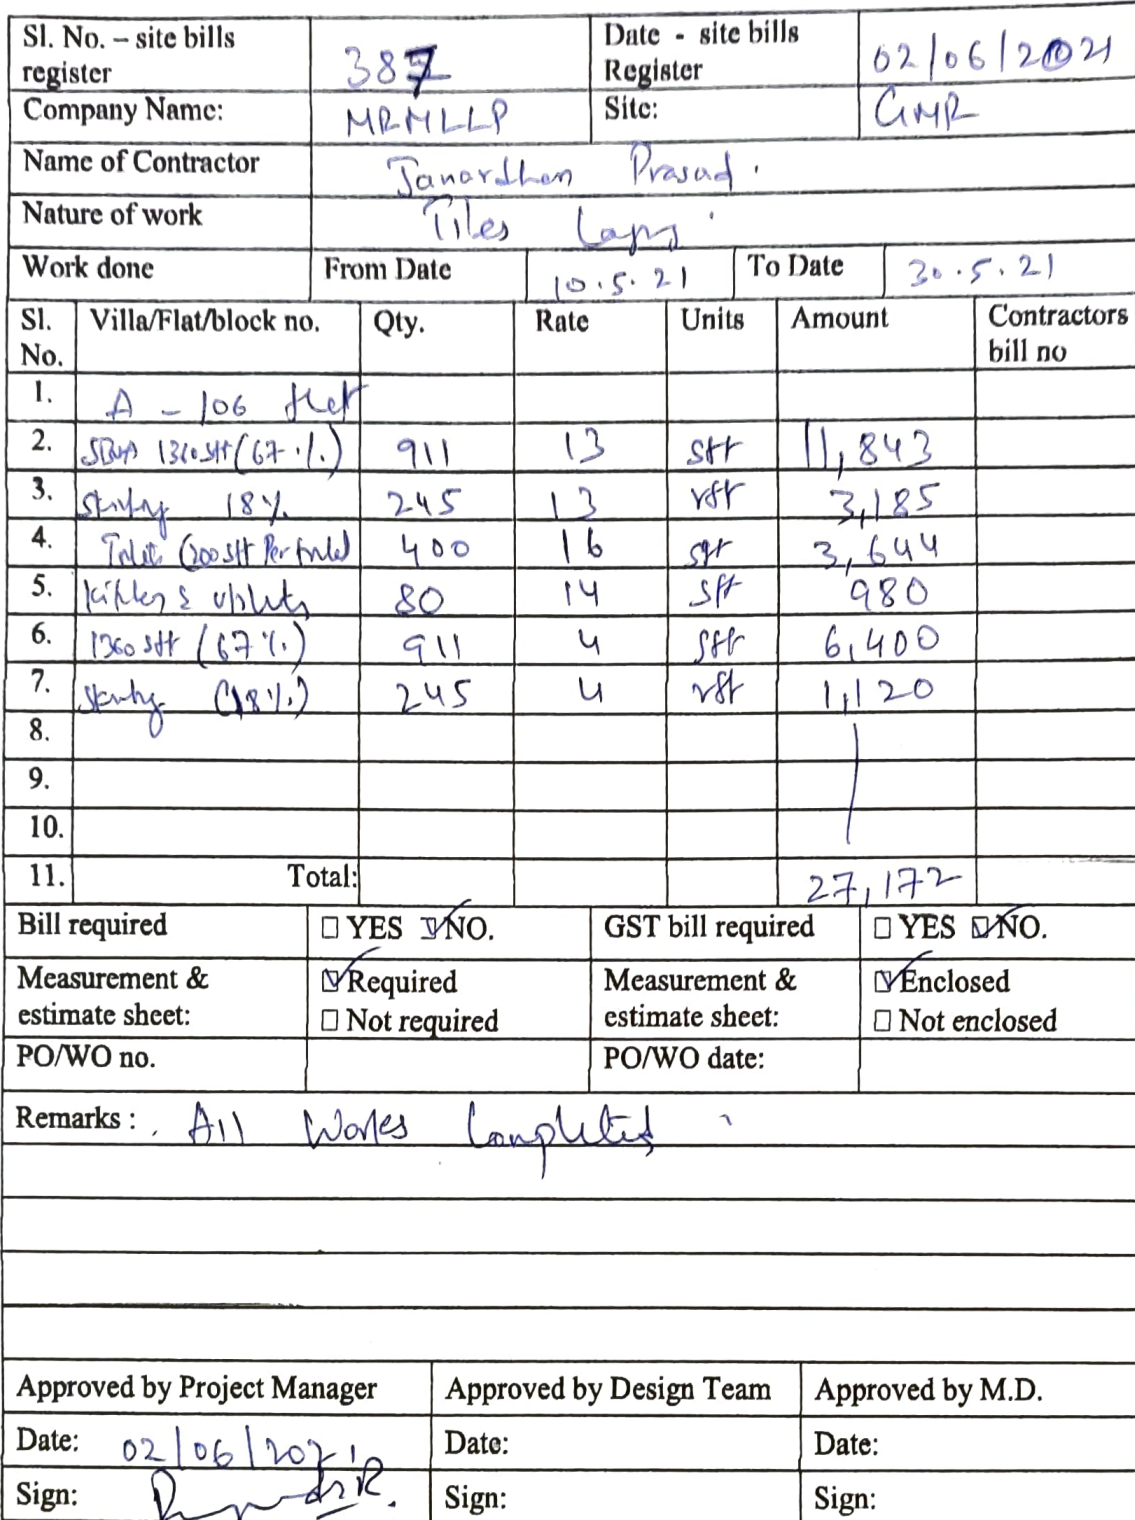 Sl. No. – site bills register 387 Date - site bills Register 02/06/2021
Company Name: MRMLLP Site: GMR
Name of Contractor Janardhan Prasad.
Nature of work Tiles
Work done From Date 10.5.21 To Date 30.5.21
Sl. No. Villa/Flat/block no. Qty. Rate Units Amount Contractors bill no
1. A - 106 flat
2. 1360 sft (67%) 911 13 sft 11,843
3. 18% 245 13 rft 3,185
4. (200 sft Per 400 16 sft 3,644
5. 80 14 sft 980
6. 1360 sft (67%) 911 4 sft 6,400
7. (18%) 245 4 rft 1,120
8.
9.
10.
11. Total: 27,172
Bill required ☐ YES ☑ NO. GST bill required ☐ YES ☑ NO.
Measurement & ☑ Required Measurement & ☑ Enclosed
estimate sheet: ☐ Not required estimate sheet: ☐ Not enclosed
PO/WO no. PO/WO date:
Remarks : All Works Completed
Approved by Project Manager Approved by Design Team Approved by M.D.
Date: 02/06/2021 Date: Date:
Sign: Sign: Sign: